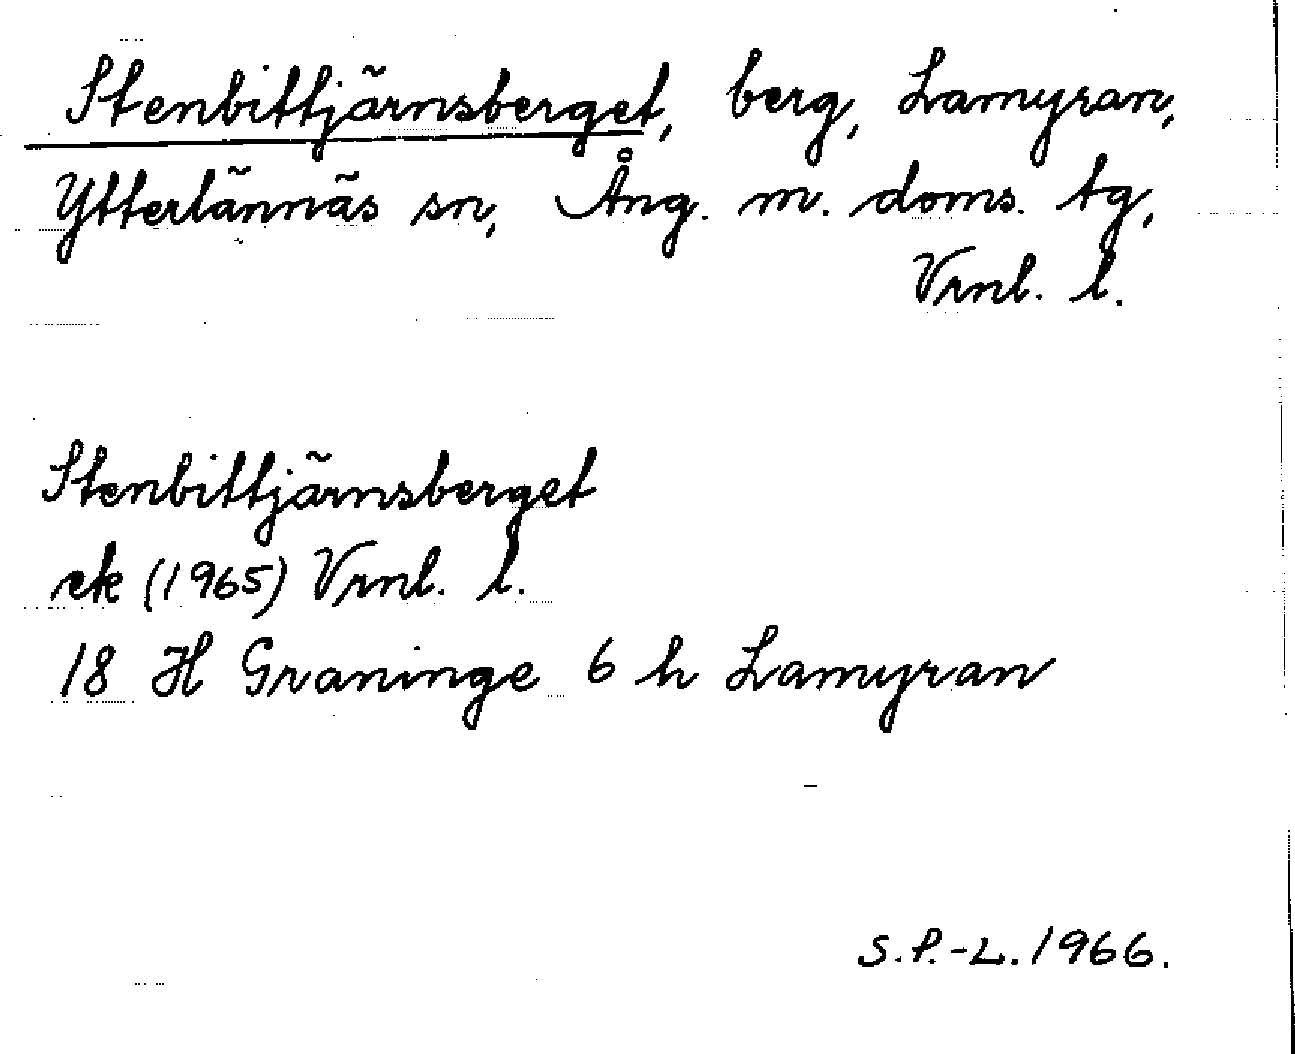 Stenbittjärnsberget, berg, Lamyran,
Ytterlännäs sn, Ång. m. doms. tg,
Vrnl. l.
Stenbittjärnsberget
ek (1965) Vrnl. l.
18 H Graninge 6 h Lamyran
S.P.-L. 1966.